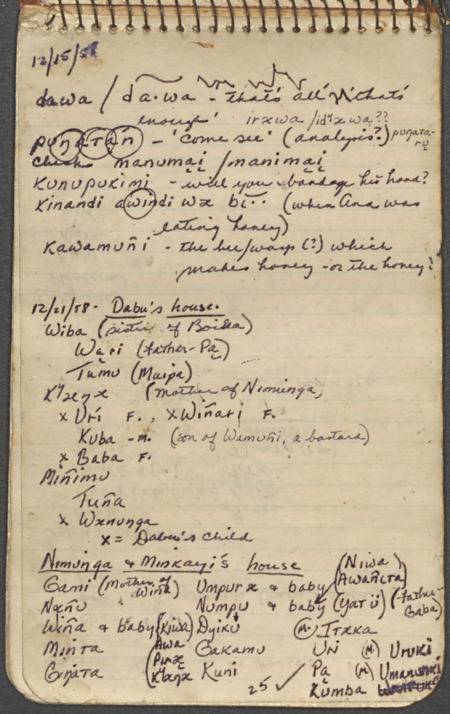 12/15/58
dawa / da·wa - that's all / that's
enough' irxwa / idᶻxwa ??
puŋatañ - 'come see' (analysis?) puŋata-
check manumąį / manimąį
Kunupukimi - will you bandage his hand?
Kinandi awindi wæ bi.. (when Ana was
eating honey)
Kawamuñi - the bee/wasp (?) which
makes honey - or the honey?
12/21/58 - Dabu's house.
Wiba (sister of Boika)
Wąri (father - Pą)
Tumu (Muipa)
(mother of Nimunga)
x Uri F., x Wiñari F.
Kuba - m. (son of Wamuñi, a bastard)
x Baba F.
Miñimu
Tuña
x Wænunga
x = Dabu's child
Nimunga & Minkayi's house
Gami (mother of Wiña) Umpuræ & baby (Niwa) Awañita
Næñu Numpu & baby (Yatü) (father - Gaba)
Wiña & baby (Kiwa) Dyikü (M) Itæka
Minta Awa Gakamu Uri (M) Uruki
Giŋata Kuni Pą (M) Umanuki
25 ✓ Kumba